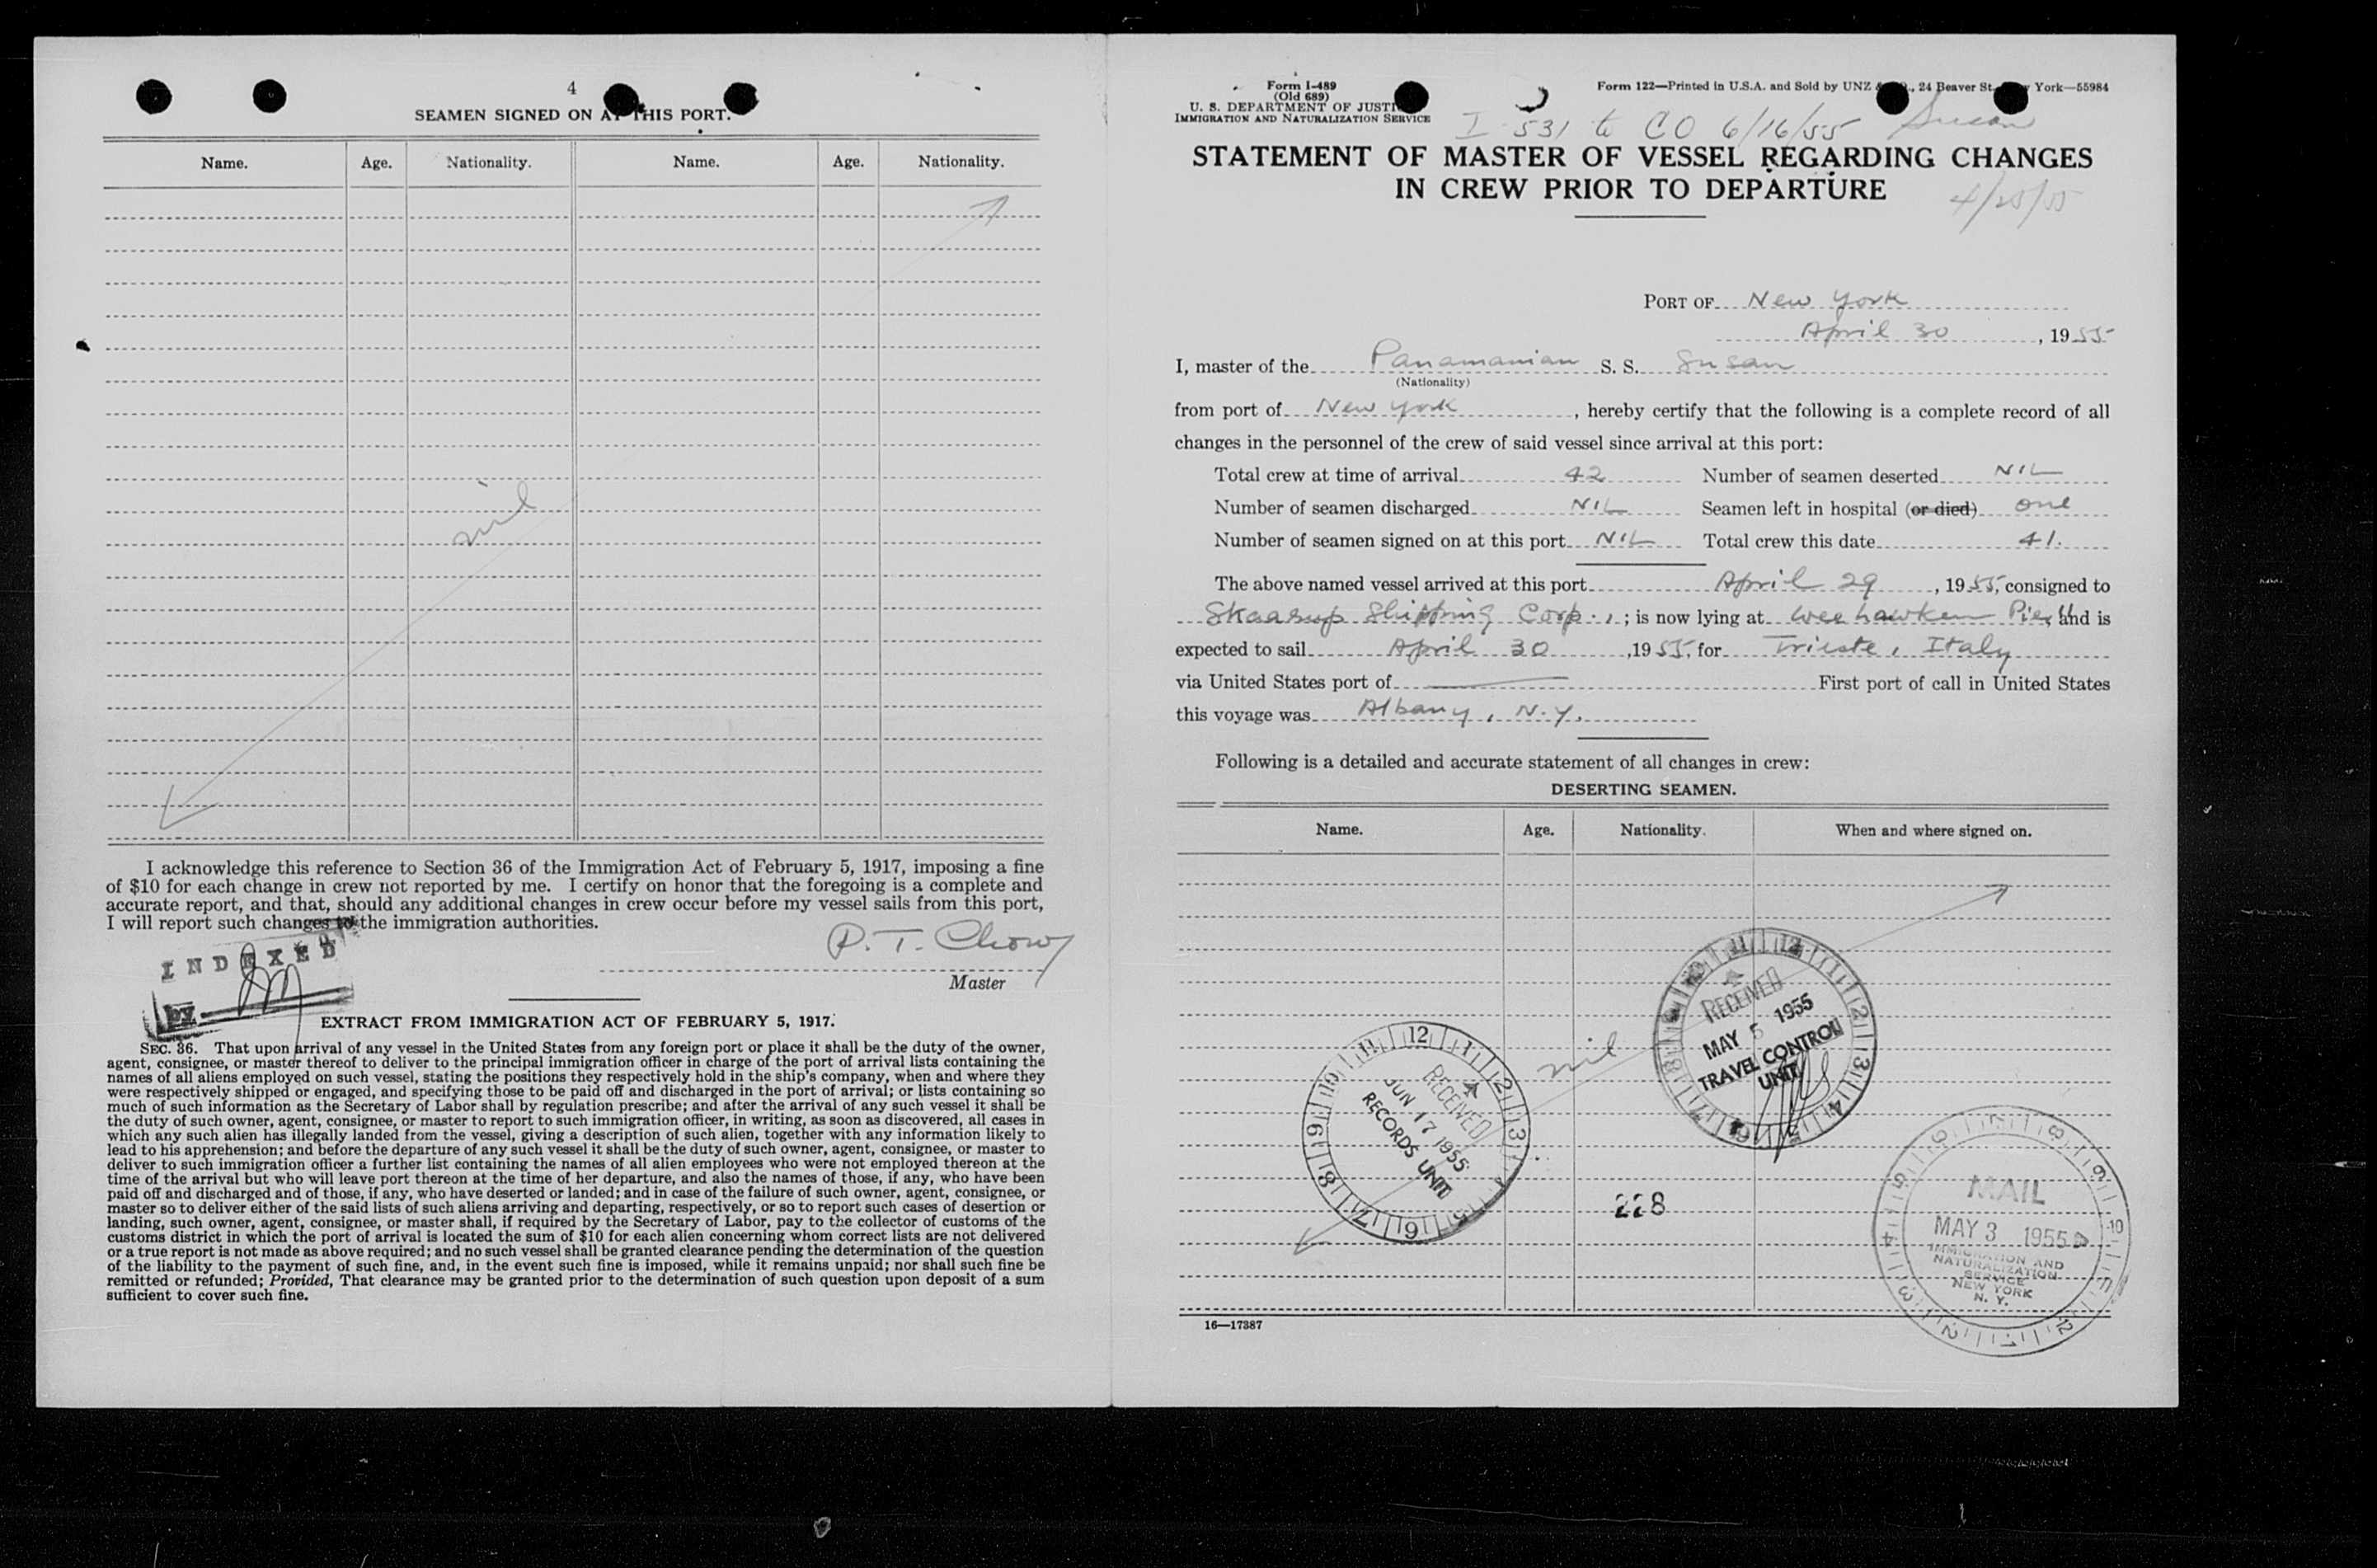 4
SEAMEN SIGNED ON AT THIS PORT.
Name. Age. Nationality. Name. Age. Nationality.
nil
I acknowledge this reference to Section 36 of the Immigration Act of February 5, 1917, imposing a fine
of $10 for each change in crew not reported by me. I certify on honor that the foregoing is a complete and
accurate report, and that, should any additional changes in crew occur before my vessel sails from this port,
I will report such changes to the immigration authorities.
P. T. Chow
Master
INDEXED
by
EXTRACT FROM IMMIGRATION ACT OF FEBRUARY 5, 1917.
SEC. 36. That upon arrival of any vessel in the United States from any foreign port or place it shall be the duty of the owner,
agent, consignee, or master thereof to deliver to the principal immigration officer in charge of the port of arrival lists containing the
names of all aliens employed on such vessel, stating the positions they respectively hold in the ship's company, when and where they
were respectively shipped or engaged, and specifying those to be paid off and discharged in the port of arrival; or lists containing so
much of such information as the Secretary of Labor shall by regulation prescribe; and after the arrival of any such vessel it shall be
the duty of such owner, agent, consignee, or master to report to such immigration officer, in writing, as soon as discovered, all cases in
which any such alien has illegally landed from the vessel, giving a description of such alien, together with any information likely to
lead to his apprehension; and before the departure of any such vessel it shall be the duty of such owner, agent, consignee, or master to
deliver to such immigration officer a further list containing the names of all alien employees who were not employed thereon at the
time of the arrival but who will leave port thereon at the time of her departure, and also the names of those, if any, who have been
paid off and discharged and of those, if any, who have deserted or landed; and in case of the failure of such owner, agent, consignee, or
master so to deliver either of the said lists of such aliens arriving and departing, respectively, or so to report such cases of desertion or
landing, such owner, agent, consignee, or master shall, if required by the Secretary of Labor, pay to the collector of customs of the
customs district in which the port of arrival is located the sum of $10 for each alien concerning whom correct lists are not delivered
or a true report is not made as above required; and no such vessel shall be granted clearance pending the determination of the question
of the liability to the payment of such fine, and, in the event such fine is imposed, while it remains unpaid; nor shall such fine be
remitted or refunded; Provided, That clearance may be granted prior to the determination of such question upon deposit of a sum
sufficient to cover such fine.
Form I-489
(Old 689)
U. S. DEPARTMENT OF JUSTICE
IMMIGRATION AND NATURALIZATION SERVICE
Form 122—Printed in U.S.A. and Sold by UNZ & , 24 Beaver St. York—55984
I 531 to CO 6/16/55 Susan
STATEMENT OF MASTER OF VESSEL REGARDING CHANGES
IN CREW PRIOR TO DEPARTURE
4/25/55
PORT OF New York
April 30, 1955
I, master of the Panamanian S. S. Susan
(Nationality)
from port of New York, hereby certify that the following is a complete record of all
changes in the personnel of the crew of said vessel since arrival at this port:
Total crew at time of arrival 42 Number of seamen deserted NIL
Number of seamen discharged NIL Seamen left in hospital (or died) one
Number of seamen signed on at this port NIL Total crew this date 41.
The above named vessel arrived at this port April 29, 1955, consigned to
Skaarup Shipping Corp.; is now lying at Weehawken Pier, and is
expected to sail April 30, 1955, for Trieste, Italy
via United States port of First port of call in United States
this voyage was Albany, N.Y.
Following is a detailed and accurate statement of all changes in crew:
DESERTING SEAMEN.
Name. Age. Nationality. When and where signed on.
nil
RECEIVED
MAY 5 1955
TRAVEL CONTROL
UNIT
RECEIVED
JUN 17 1955
RECORDS UNIT
228
MAIL
MAY 3 1955
IMMIGRATION AND
NATURALIZATION
SERVICE
NEW YORK
N. Y.
16—17387